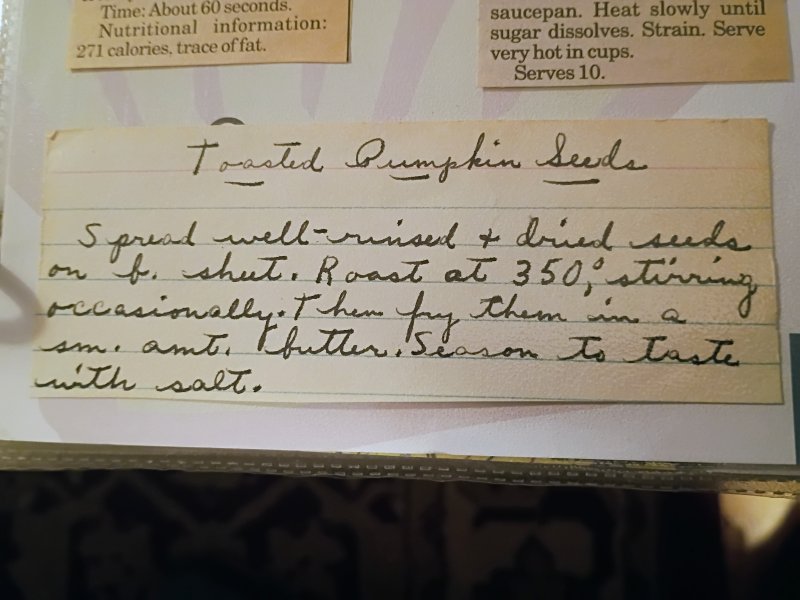 Time: About 60 seconds.
Nutritional information:
271 calories, trace of fat.
saucepan. Heat slowly until
sugar dissolves. Strain. Serve
very hot in cups.
Serves 10.
Toasted Pumpkin Seeds
Spread well-rinsed + dried seeds
on b. sheet. Roast at 350°, stirring
occasionally. Then fry them in a
sm. amt. butter. Season to taste
with salt.